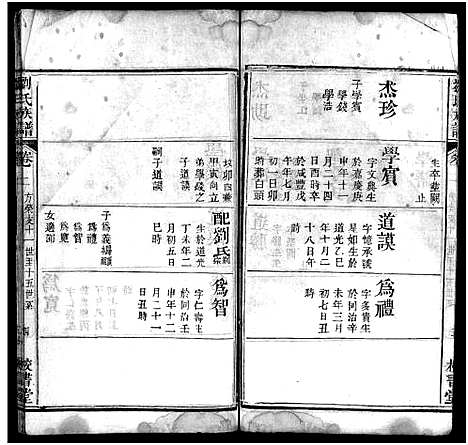 生卒葬闕
止
杰珍
子學賓
學錢
學浩
學賓
字文興生
於嘉慶庚
申年十一
月二十四
日酉時卒
於咸豐戊
午年七月
初一日卯
時葬白頭
道謨
字憶承號
星如生於
道光乙巳
年十月二
十八日午
時
爲禮
字多貴生
於同治辛
未年三月
初七日
時
劉氏族譜
卷
世至十五世系
坟卯酉兼
甲寅向立
弟學錢之
嗣子道謨
配劉氏
生於道光
丁未年二
月初五日
巳時
子爲義
爲禮
爲寬
女適謝
爲智
字仁壽生
於同治
申年十二
月二十一
日丑時
校書堂